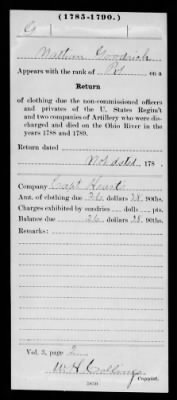 (1785-1790.)
G
Nathan Goodrich
Appears with the rank of Pvt on a
Return
of clothing due the non-commissioned officers
and privates of the U. States Regim't
and two companies of Artillery who were dis-
charged and died on the Ohio River in the
years 1788 and 1789.
Return dated
Not dated, 178 .
Company Capt Heart
Amt. of clothing due 26 dollars 28 90ths.
Charges exhibited by sundries dolls pts.
Balance due 26 dollars 28 90ths.
Remarks:
Vol. 3, page 2
W. H. Collings
Copyist.